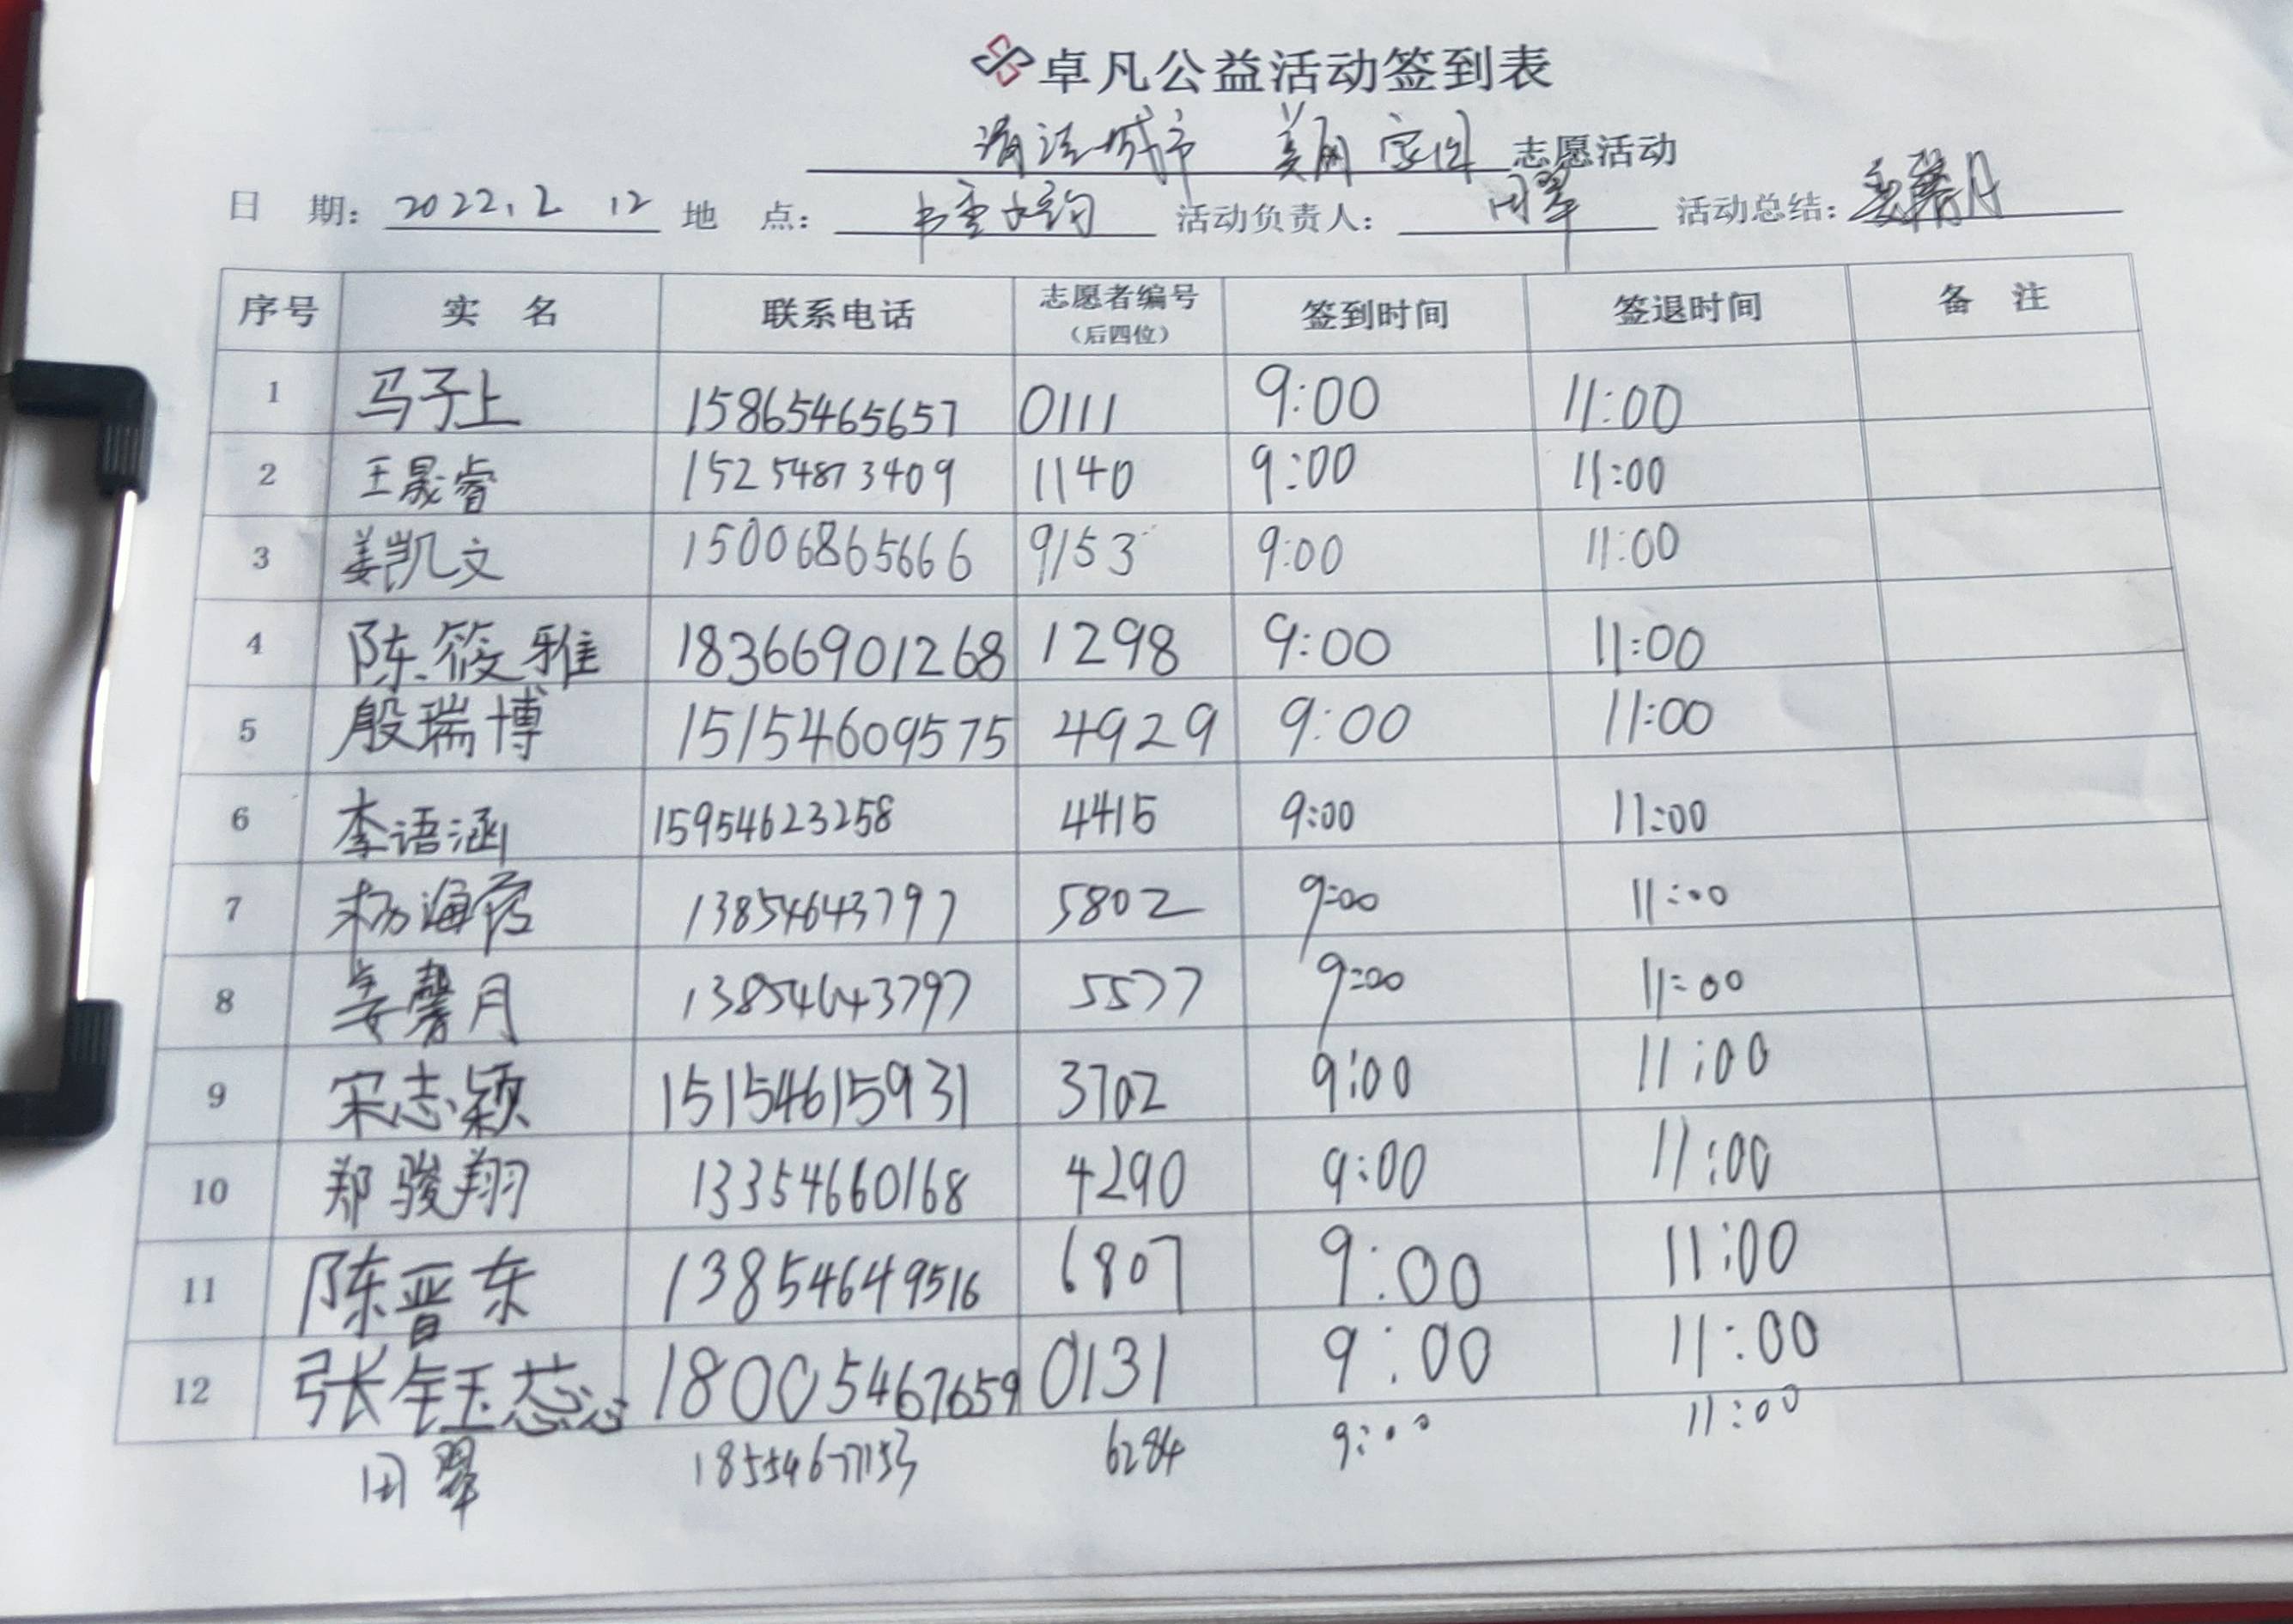 卓凡公益活动签到表
清洁城市 美丽家园 志愿活动
日 期: 2022.2 12 地 点: 活动负责人: 田翠 活动总结: 姜馨月
序号 实 名 联系电话 志愿者编号 (后四位) 签到时间 签退时间 备 注
1 马子上 15865465657 0111 9:00 11:00
2 王晟睿 15254873409 1140 9:00 11:00
3 姜凯文 15006865666 9153 9:00 11:00
4 陈筱雅 18366901268 1298 9:00 11:00
5 殷瑞博 15154609575 4929 9:00 11:00
6 李语涵 15954623258 4415 9:00 11:00
7 杨海霞 13854643797 5802 9:00 11:00
8 姜馨月 13854643797 5577 9:00 11:00
9 宋志颖 15154615931 3702 9:00 11:00
10 郑骏翔 13354660168 4290 9:00 11:00
11 陈晋东 13854649516 6807 9:00 11:00
12 张钰蕊 18005467659 0131 9:00 11:00
田翠 18554677153 6284 9:00 11:00